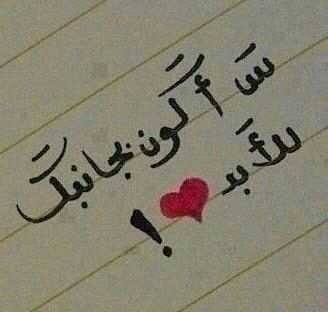 سَ أكون بجانبك
للأبد ❤!